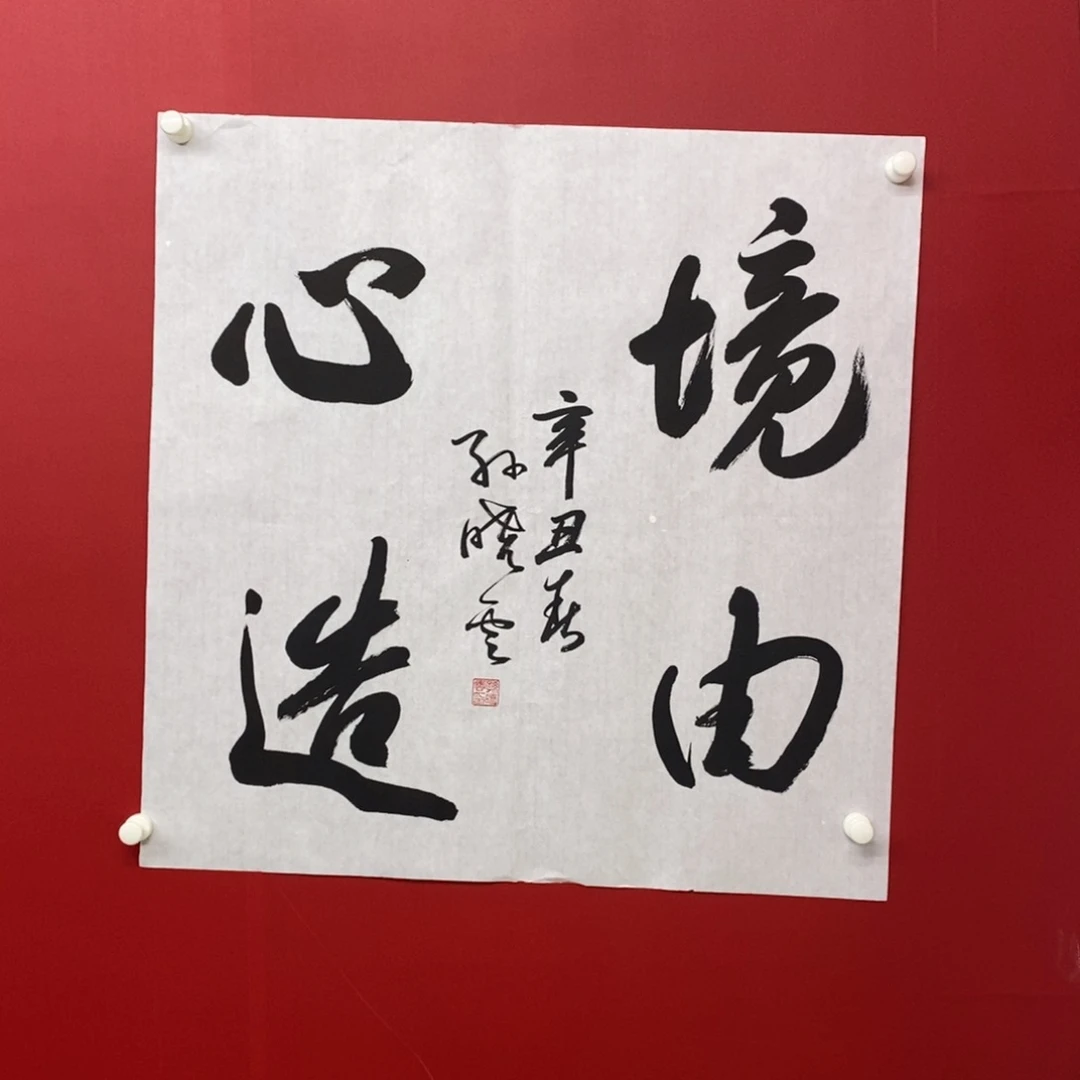 境由
心造
辛丑春
孙晓云